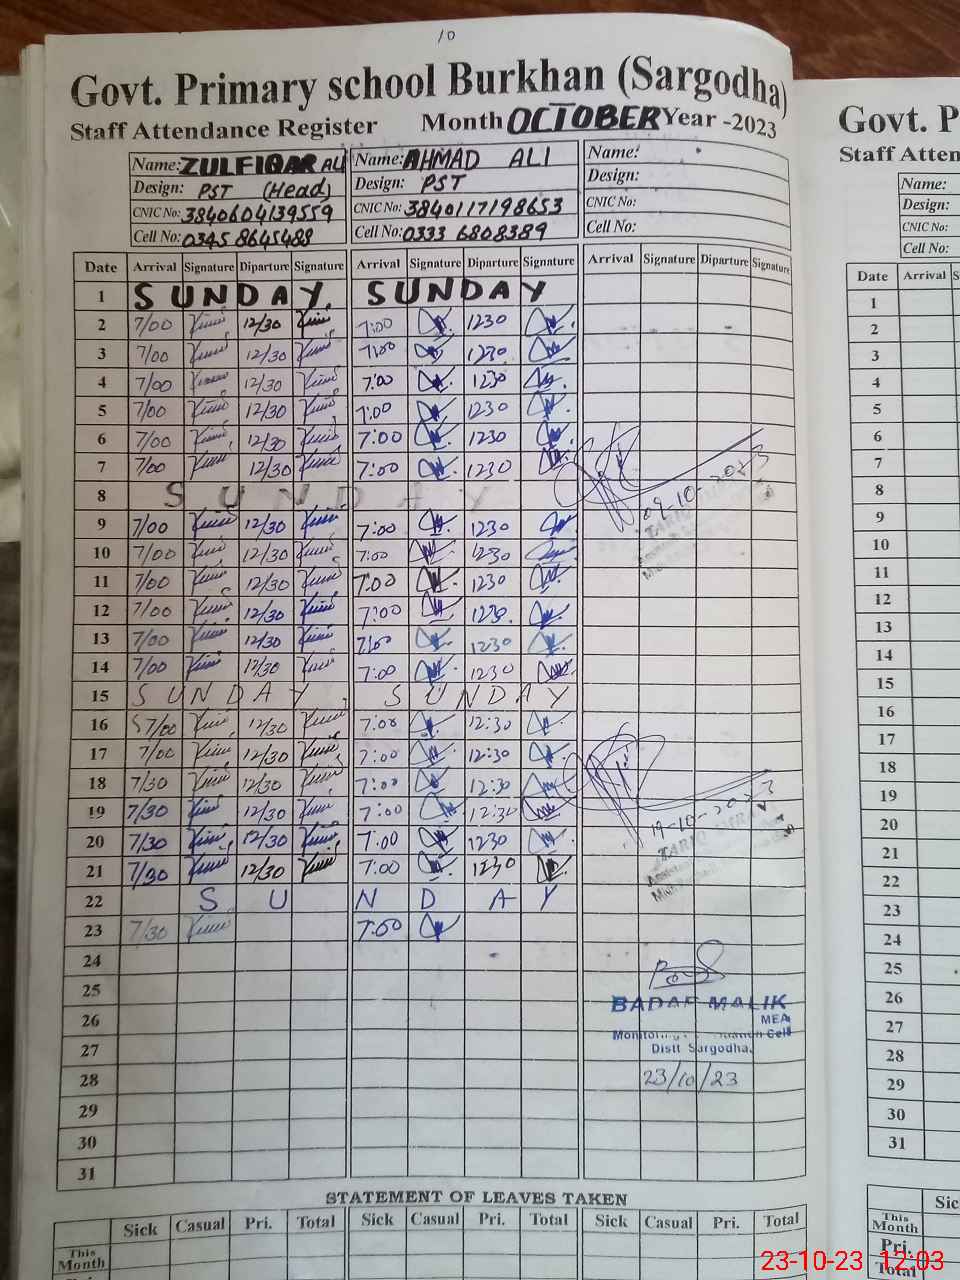 10
Govt. Primary school Burkhan (Sargodha)
Staff Attendance Register Month OCTOBER Year -2023
Name: ZULFIQAR ALI Name: AHMAD ALI Name:
Design: PST (Head) Design: PST Design:
CNIC No: 3840604139559 CNIC No: 3840117198653 CNIC No:
Cell No: 0345 8645488 Cell No: 0333 6808389 Cell No:
Date Arrival Signature Diparture Signature Arrival Signature Diparture Signature Arrival Signature Diparture Signature
1 SUNDAY. SUNDAY
2 7/00 12/30 7:00 1230
3 7/00 12/30 7:00 1230
4 7/00 12/30 7:00 1230
5 7/00 12/30 7:00 1230
6 7/00 12/30 7:00 1230
7 7/00 12/30 7:00 1230
8 SUNDAY
09-10-2023
9 7/00 12/30 7:00 1230
10 7/00 12/30 7:00 1230
11 7/00 12/30 7:00 1230
12 7/00 12/30 7:00 1230.
13 7/00 12/30 7:00 1230
14 7/00 12/30 7:00 1230
15 SUNDAY. SUNDAY
16 7/00 12/30 7:00 12:30
17 7/00 12/30 7:00 12:30
18 7/30 12/30 7:00 12:30
19 7/30 12/30 7:00 12:30
19-10-2023
20 7/30 12/30 7:00 1230
TARIQ
21 7/30 12/30 7:00 1230
22 SUNDAY
23 7/30 7:00
24
25
BADAR MALIK
26
MEA
27
Cell
Distt Sargodha.
28
23/10/23
29
30
31
STATEMENT OF LEAVES TAKEN
Sick Casual Pri. Total Sick Casual Pri. Total Sick Casual Pri. Total
This Month
Govt. P
Staff Atten
Name:
Design:
CNIC No:
Cell No:
Date Arrival S
1
2
3
4
5
6
7
8
9
10
11
12
13
14
15
16
17
18
19
20
21
22
23
24
25
26
27
28
29
30
31
Sic
This Month
Pri.
Total
23-10-23 12:03